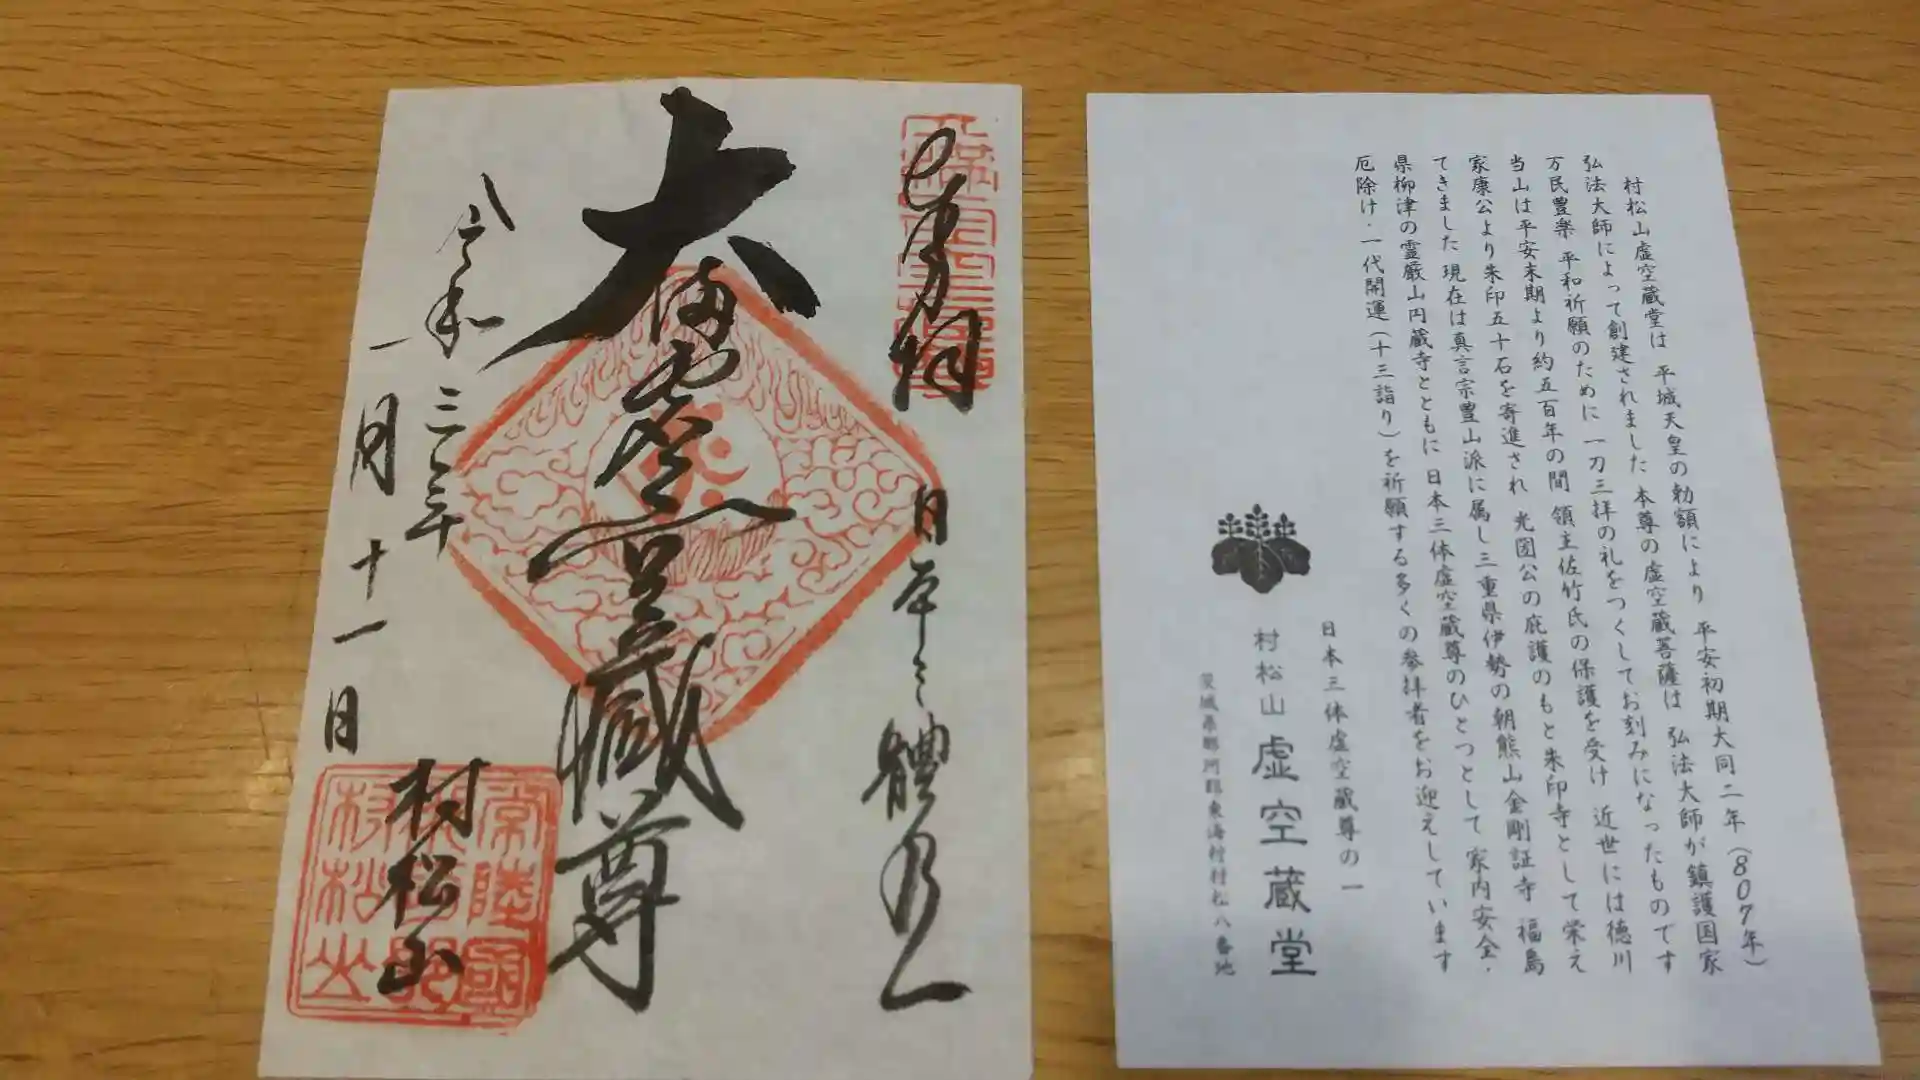 奉拝
日本三體乃一
大満虚空蔵尊
令和三年
一月十一日
村松山
常陸國
村松山
村松山虚空蔵堂は 平城天皇の勅額により 平安初期大同二年(807年)
弘法大師によって創建されました 本尊の虚空蔵菩薩は 弘法大師が鎮護国家
万民豊楽 平和祈願のために 一刀三拝の礼をつくしてお刻みになったものです
当山は平安末期より約五百年の間 領主佐竹氏の保護を受け 近世には徳川
家康公より朱印五十石を寄進され 光圀公の庇護のもと朱印寺として栄え
てきました 現在は真言宗豊山派に属し三重県伊勢の朝熊山金剛証寺 福島
県柳津の霊厳山円蔵寺とともに 日本三体虚空蔵尊のひとつとして 家内安全・
厄除け・一代開運(十三詣り)を祈願する多くの参拝者をお迎えしています
日本三体虚空蔵尊の一
村松山虚空蔵堂
茨城県那珂郡東海村村松八番地